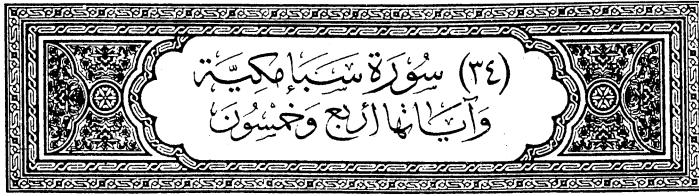 (٣٤) سُورَة سَبَإ مَكِيَّة
وَآيَاتهَا أربَع وَخَمْسُونَ